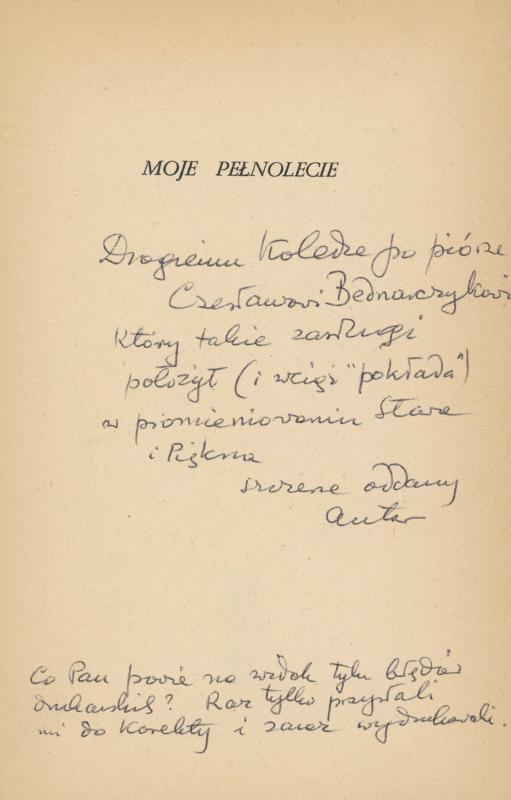 MOJE PEŁNOLECIE
Drogiemu Koledze po piórze
Czesławowi Bednarczykowi
który takie zasługi
położył (i wciąż "pokłada")
w promieniowaniu Słowa
i Piękna
szczerze oddany
autor
Co Pan powie na widok tylu błędów
drukarskich? Raz tylko przysłali
mi do korekty i zaraz wydrukowali.